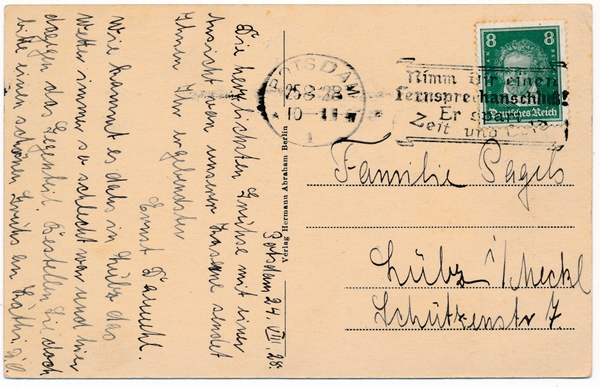 Potsdam 24 VIII 28.
Die herzlichsten Grüße mit einer
Ansicht von unserer Kaserne sendet
Ihnen Ihr ergebenster
Ernst
Wie kommt es daß in Lübz das
Wetter immer so schlecht war und hier
dagegen das Gegenteil. Bestellen Sie doch
bitte einen schönen Gruß an
Verlag Hermann Abraham Berlin
POTSDAM
25.8.28
10-11
Nimm Dir einen
Fernsprechanschluß!
Er spart
Zeit und
8 8
Deutsches Reich
Familie Pagels
Lübz i/Meckl
Schützenstr 7